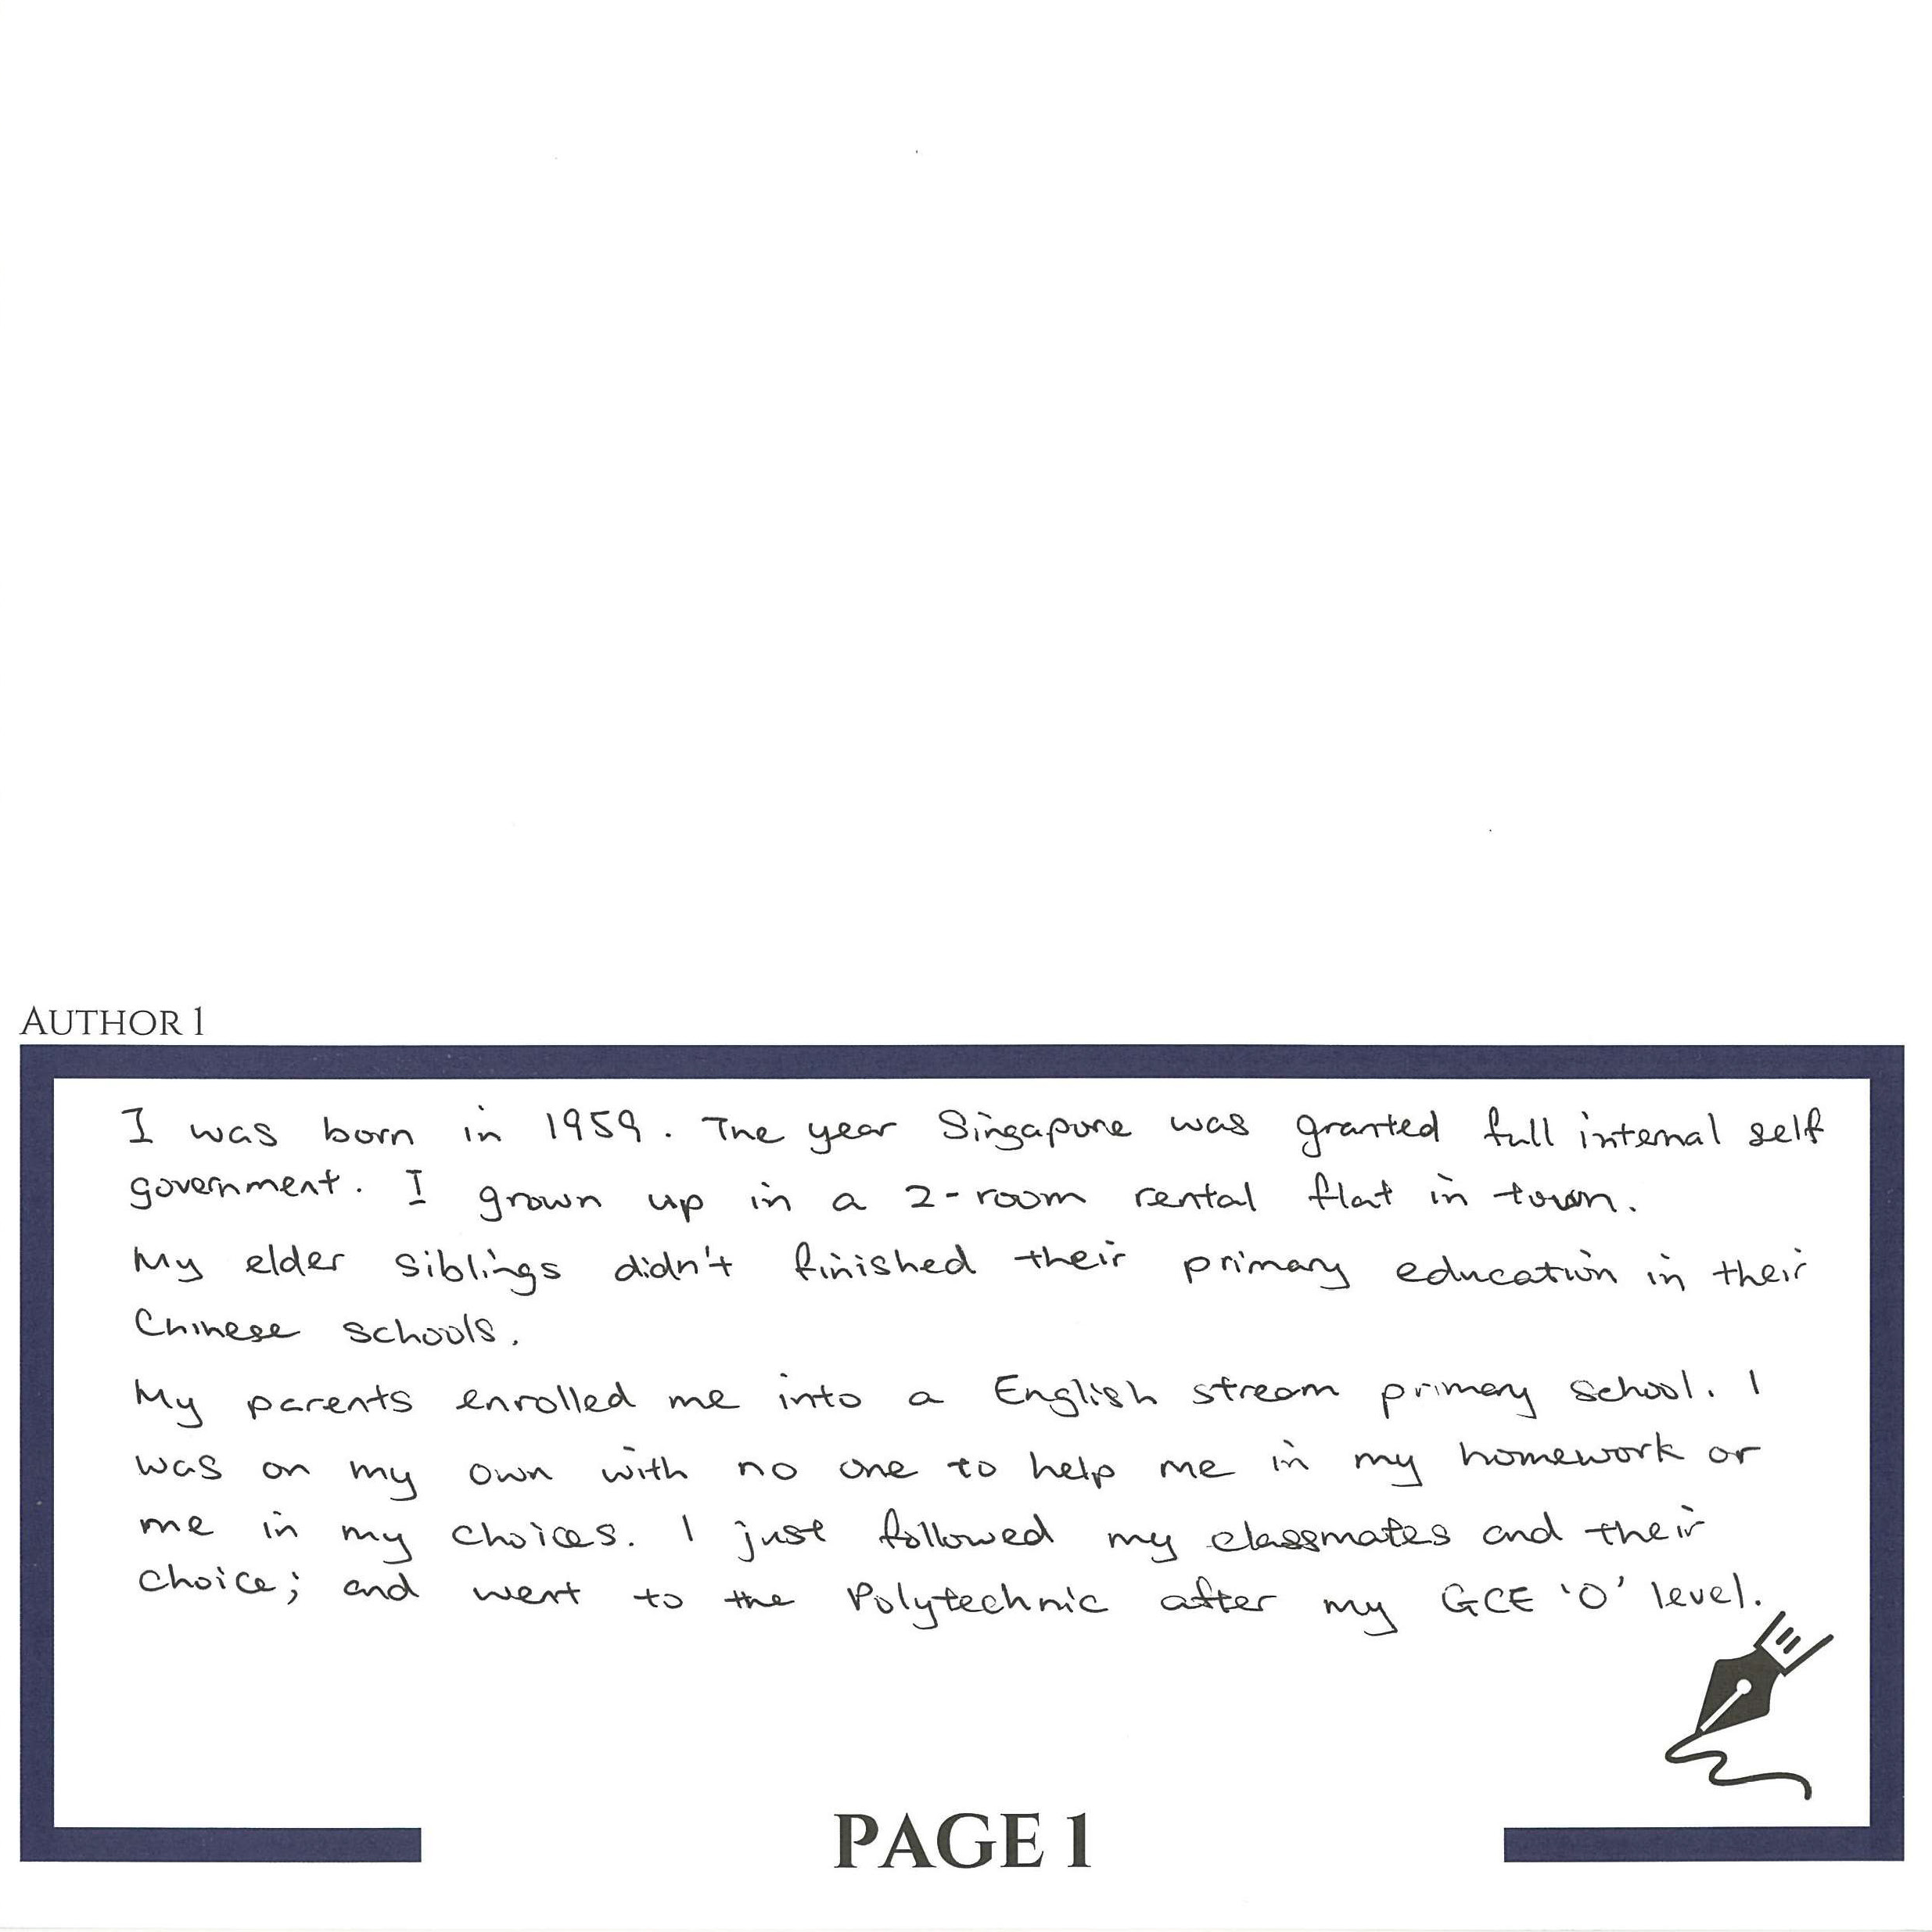 AUTHOR 1
I was born in 1959. The year Singapore was granted full internal self
government. I grown up in a 2-room rental flat in town.
My elder siblings didn't finished their primary education in their
Chinese schools.
My parents enrolled me into a English stream primary school. I
was on my own with no one to help me in my homework or
me in my choices. I just followed my classmates and their
choice; and went to the Polytechnic after my GCE 'O' level.
PAGE 1